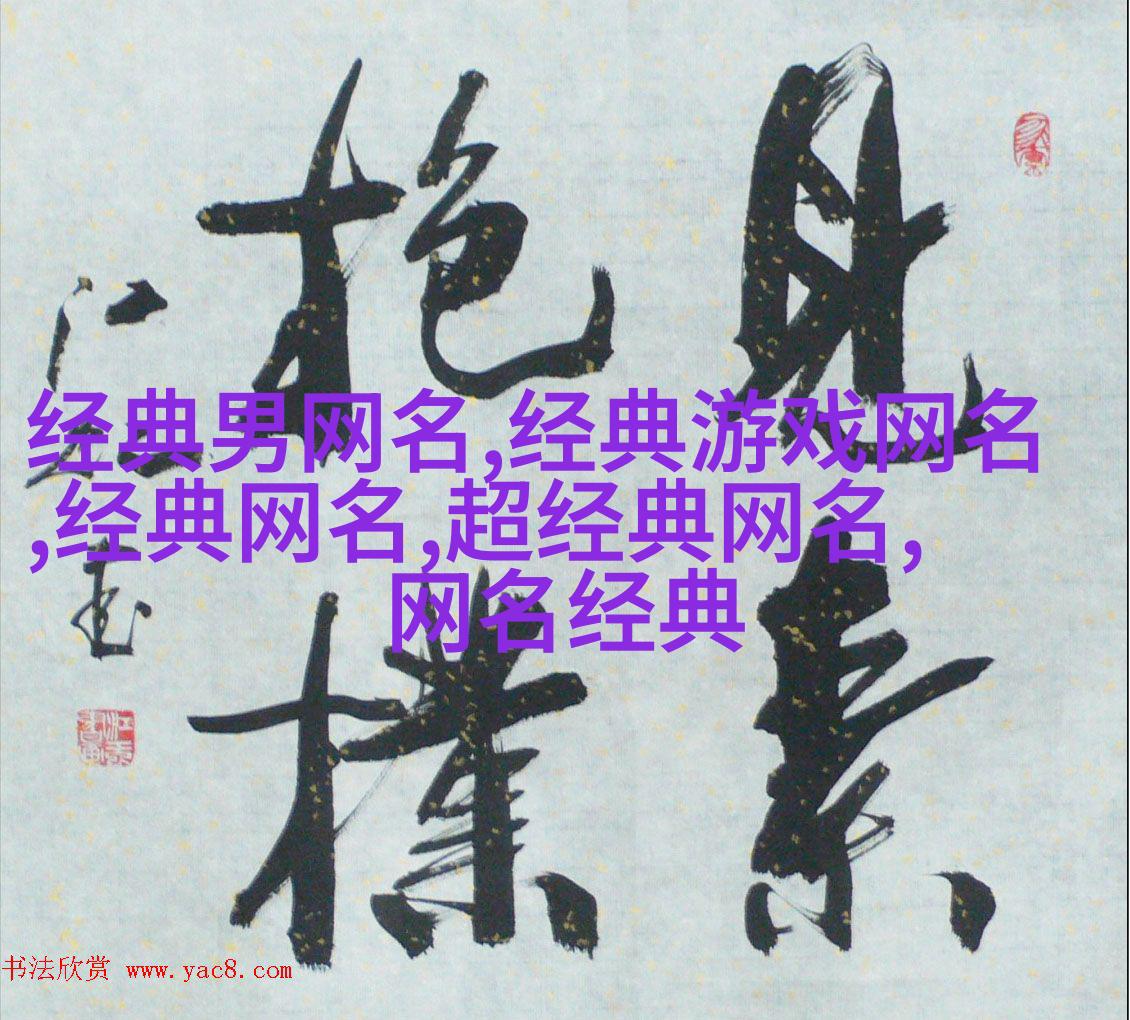 見素
抱樸
经典男网名,经典游戏网名
,经典网名,超经典网名,
网名经典
书法欣赏 www.yac8.com